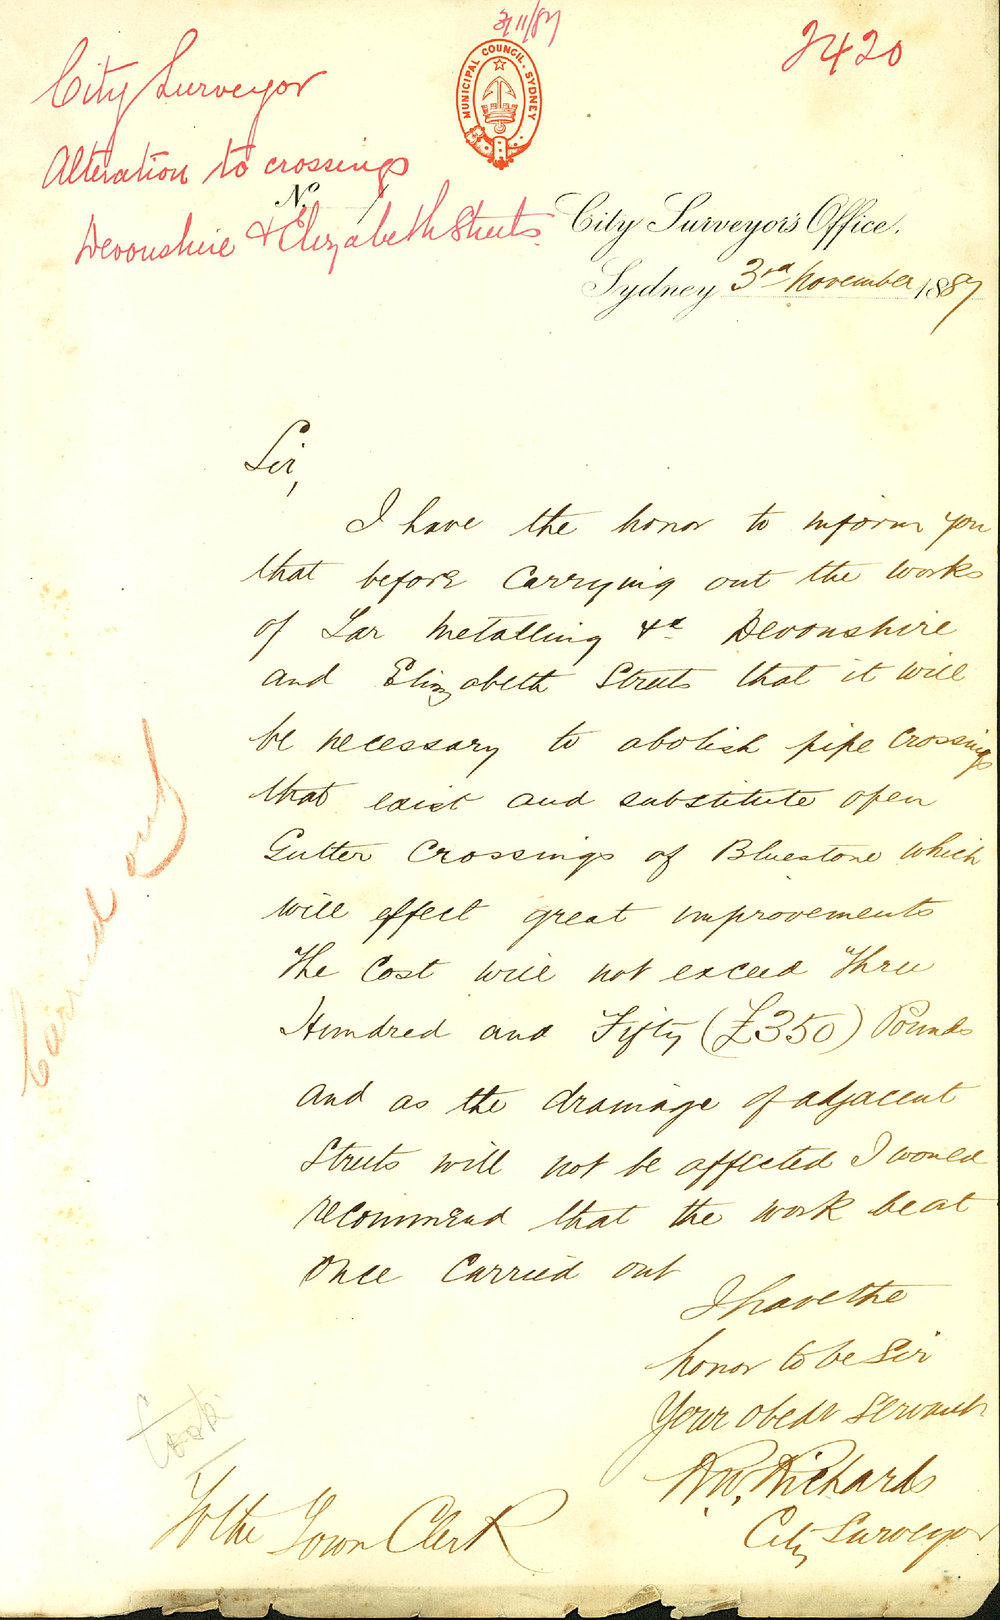 3/11/87
2420
City Surveyor
Alteration to crossings
Devonshire & Elizabeth Streets
MUNICIPAL COUNCIL. SYDNEY
No.
City Surveyor's Office,
Sydney 3rd November 1887
Sir,
I have the honor to inform you
that before carrying out the works
of Tar Metalling &c Devonshire
and Elizabeth Streets that it will
be necessary to abolish pipe crossings
that exist and substitute open
Gutter Crossings of Bluestone which
will effect great improvements
The Cost will not exceed Three
Hundred and Fifty (£350) Pounds
and as the drainage of adjacent
Streets will not be affected I would
recommend that the work be at
once carried out
I have the
honor to be Sir
Your obedt servant
R.W. Richards
City Surveyor
To the Town Clerk
Carried out